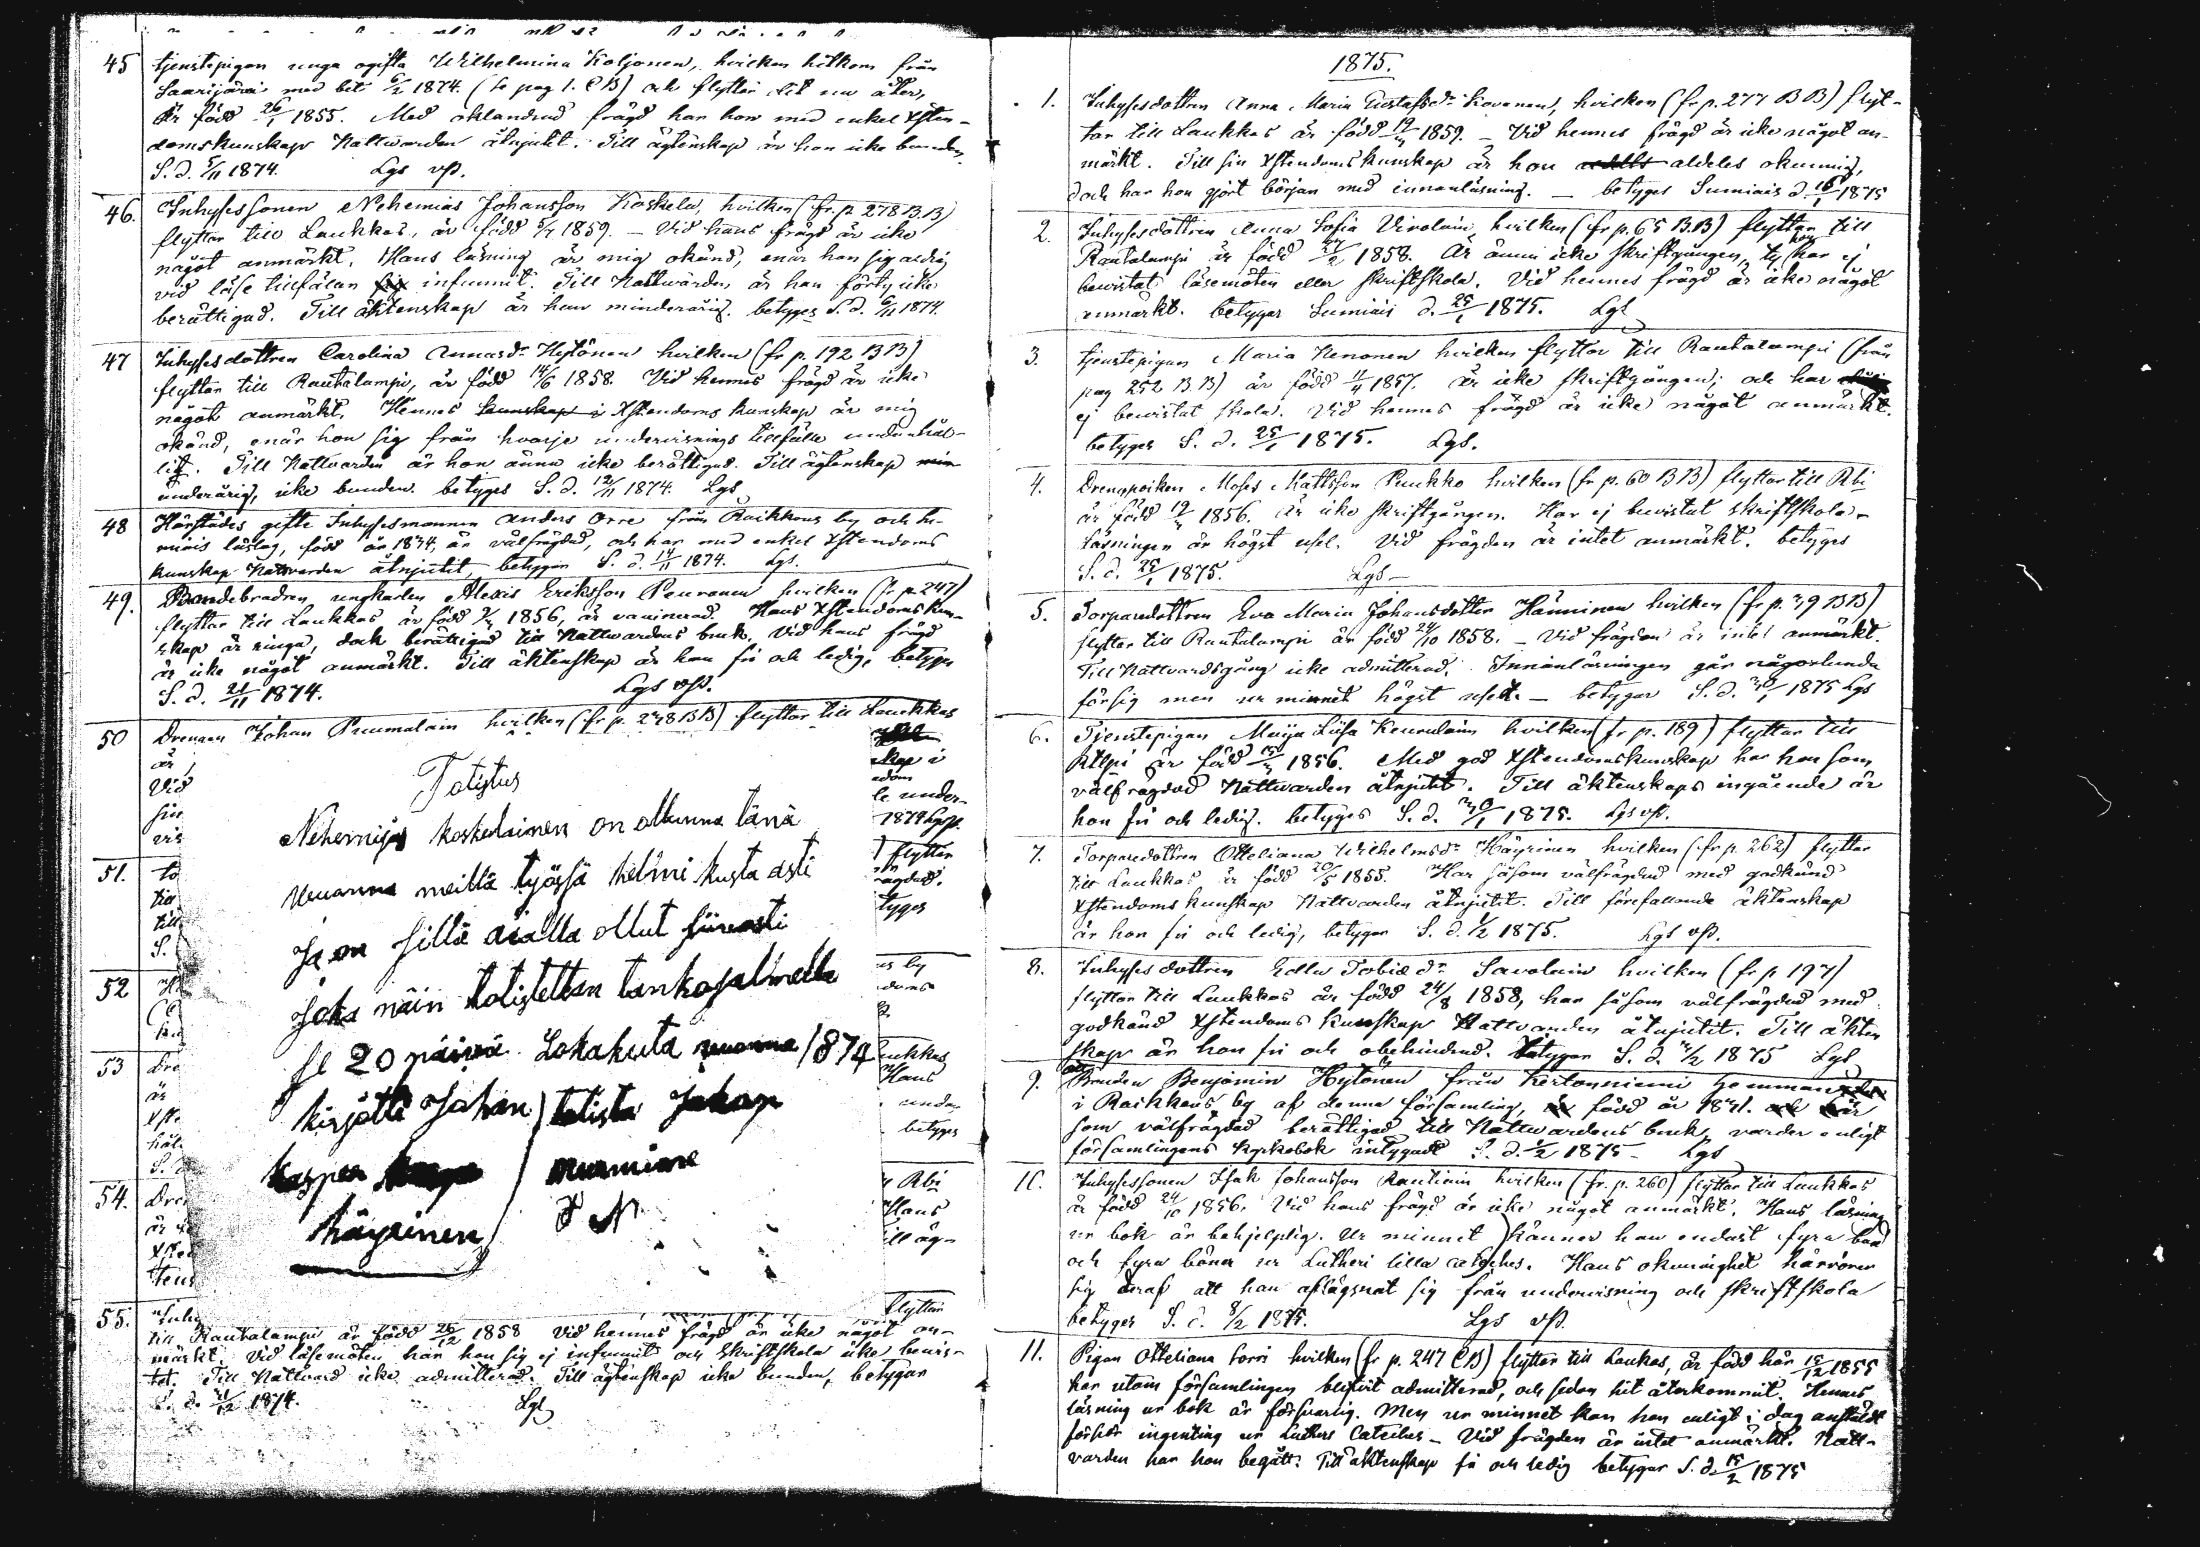 45 tjenstepigan unga ogifta Wilhelmina Koljonen, hvilken hitkom från
Saarijärvi med bet 6/2 1874. (se pag 1. CB) och flyttar dit nu åter,
är född 26/1 1855. Med oklandrad frägd har hon med enkel Xsten-
domskunskap Nattvarden åtnjutit. Till ägtenskap är hon icke bunden,
S. d. 5/11 1874. Lgs vß.
46. Inhysessonen Nehemias Johansson Koskela, hvilken (fr. p. 278 BB)
flyttar till Laukkas, är född 1859. – Vid hans frägd är icke
något anmärkt. Hans läsning är mig okänd, enär han sig aldrig
vid läse tillfälen infunnit. Till Nattvarden är han förty icke
berättigad. Till äktenskap är han minderårig. betyges S. d. 6/11 1874.
47 Inhysesdottren Carolina Annasdr Hytönen hvilken (fr p. 192 BB)
flyttar till Rautalampi, är född 14/6 1858. Vid hennes frägd är icke
något anmärkt. Hennes kunskap i Xstendoms kunskap är mig
okänd, enär hon sig från hvarje undervisnings tillfälle undanhål-
lit. Till Nattvarden är hon ännu icke berättigad. Till ägtenskap min
underårig, icke bunden. betyges S. d. 12/11 1874. Lgs
48 Härstädes gifte Inhysesmannen Anders Orre från Raikkaus by och Su-
miais läslag, född år 1834, är välfrägdad, och har med enkel Xstendoms
kunskap Nattvarden åtnjutit betygar S. d. 14/11 1874. Lgs.
49. Bondebrodren ungkarlen Alexis Eriksson Peuranen hvilken (fr p. 247)
flyttar till Laukkas är född 1856, är vaccinerad. Hans Xstendomskun-
skap är ringa, dock berättigad till Nattvardens bruk. Vid hans frägd
är icke något anmärkt. Till äktenskap är han fri och ledig, betyges
S. d. 21/11 1874. Lgs vß.
50 Drengen Johan Puumalain hvilken (fr p. 278 BB) flyttar till Laukkas
är
Vid
sin
vis
skap i
under-
1874 Lgs
Totistus
Nehemijas koskelainen on ollunna tänä
Vuanna meillä työssä helmi kusta asti
ja on sillä aialla ollut siivosti
Joka näin totistettan tankosalmella
se 20 päivä Lokakuta vuanna 1874
kirjotti Johan totista Jakop
kasper nurmine
häyrinen J N
51. to
till
S.
flyttar
rägdad.
tyges
52
us by
doms
53 dre
är
Xste
hål
S.
aukkas
Hans
undan
betyges
54. Dre
är
Xste
tens
Rbi
Hans
till äg-
55. Inhy flyttar
till Rautalampi är född 26/12 1858 Vid hennes frägd är icke något an-
märkt. Vid läsemöten har hon sig ej infunnit och Skriftskola icke bevis-
tat. Till Nattvard icke admitterad. Till ägtenskap icke bunden, betygar
S. d. 1874. Lgs
1875.
1. Inhysesdottren Anna Maria Gustafsdr Kovanen, hvilken (fr p. 277 BB) flyt-
tar till Laukkas är född 1859. – Vid hennes frägd är icke något an-
märkt. Till sin Xstendomskunskap är hon aldeles okunnig,
dock har hon gjort början med innanläsning. – betyges Sumiais d. 16/1 1875
2. Inhysesdottren Anna Sofia Virolain, hvilken (fr p. 65 BB) flyttar till
Rautalampi är född 1858. Är ännu icke skriftgången, ty hon har ej
bevistat läsemöten eller skriftskola. Vid hennes frägd är icke något
anmärkt. betyges Sumiais d. 25/1 1875. Lgs
3. Tjenstepigan Maria Kenonen hvilken flyttar till Rautalampi (från
pag 252 BB) är född 1857. är icke skriftgången; och har
ej bevistat skola. Vid hennes frägd är icke något anmärkt.
betyges S. d. 25/1 1875. Lgs.
4. Drengpoiken Moses Mattsson Puukko hvilken (fr p. 60 BB) flyttar till Rbi
är född 1856. är icke skriftgången. Har ej bevistat skriftskola –
Läsningen är högst usel. Vid frägden är intet anmärkt. betyges
S. d. 25/1 1875. Lgs –
5. Torparedottren Eva Maria Johansdotter Hänninen hvilken (fr p. 39 BB)
flyttar till Rautalampi är född 24/10 1858. – Vid frägden är intet anmärkt.
Till Nattvardsgång icke admitterad. Innanläsningen går någorlunda
försig men ur minnet högst uselt. – betygar S. d. 1875 Lgs
6. Tjenstepigan Maija Lisa Keuvelain hvilken (fr p. 189) flyttar till
Rtlpi är född 1856. Med god Xstendomskunskap har hon som
välfrägdad Nattvarden åtnjutit. Till äktenskaps ingående är
hon fri och ledig. betyges S. d. 1875. Lgs vß.
7. Torparedottren Otteliana Wilhelmsdr Häyrinen hvilken (fr p. 262) flyttar
till Laukkas är född 20/5 1855. Har såsom välfrägdad med godkänd
Xstendoms kunskap Nattvarden åtnjutit. Till förefallande äktenskap
är hon fri och ledig, betygar S. d. 1/2 1875. Lgs vß.
8. Inhysesdottren Edla Tobiædr Savolain hvilken (fr p 197)
flyttar till Laukkas är född 24/8 1858, har såsom välfrägdad med
godkänd Xstendoms kunskap Nattvarden åtnjutit. Till äkten
skap är hon fri och obehindrad. betygar S. d. 1875 Lgs
9. Att Bonden Benjamin Hytönen från Kertonniemi hemman
i Raikkaus by af denna församling, född år 1831. är
som välfrägdad berättigad till Nattvardens bruk, varder enligt
församlingens kyrkobok intygadt S. d. 1875 – Lgs
10. Inhysessonen Isak Johansson Rautiain hvilken (fr. p. 260) flyttar till Laukkas
är född 24/10 1856. Vid hans frägd är icke något anmärkt. Hans läsning
ur bok är behjelplig. Ur minnet känner han endast fyra bud
och fyra böner ur Lutheri lilla cateches. Hans okunnighet härrörer
sig deraf att han aflägsnat sig från undervisning och skriftskola
betyges S. d. 8/2 1875. Lgs vß.
11. Pigan Otteliana Sorri hvilken (fr p. 247 CB) flyttar till Laukas, är född här 15/12 1855
har utom församlingen blifvit admitterad, och sedan hit återkommit. Hennes
läsning ur bok är försvarlig. Men ur minnet kan hon enligt i dag anstäldt
förhör ingenting ur Luthers Catechis – Vid frägden är intet anmärkt. Natt-
varden har hon begått. Till äktenskap fri och ledig betygar S. d. 15/2 1875